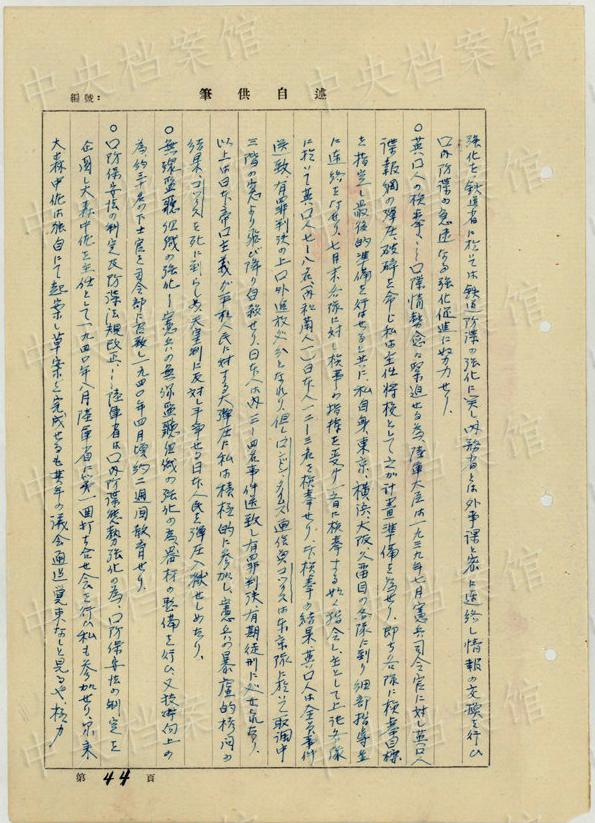 編號:
筆供自述
強化を、鉄道省に於ては鉄道防諜の強化に資し内務省とは外事課と密に連絡し情報の交換を行ひ
国内防諜の急速なる強化促進に努力せり。
○英国人の検挙ー国際情勢愈々緊迫せる為、陸軍大臣は一九三九年七月憲兵司令官に対し英国人
諜報網の弾圧、破砕を命じ私は主任将校として之が計画準備を為せり。即ち各隊に検挙目標
を指定し最後的準備を行はせると共に、私自身東京、横浜、大阪、全面目の各隊に到り細部指導並
に連絡をなせり。七月末各隊に対し検事の指揮を受け一斉に検挙する如く指令し、主として上記各隊
に於いて英国人七ー八名(内和蘭人一)日本人一二ー三名を検挙せり。検挙の結果英国人は全員事件
送致、有罪判決の上国外追放処分となれり、但しロンドンタイムス通信員コックスは東京隊に於いて取調中
三階の窓より飛び降り自殺せり。日本人は内三ー四名事件送致し有罪判決、有期徒刑に処せられたり。
以上は日本帝国主義が平和人民に対する大弾圧に私は積極的に参加し、憲兵の暴虐的拷問の
結果、コックスを死に到らしめ
○無線盗聴組織の強化ー憲兵の無線盗聴組織の強化の為、器材の整備を行ひ又技術向上の
為、約三十名の下士官を司令部に召致し一九四〇年四月頃約二週間教育せり。
○国防保安法の制定及防諜法規改正ー陸軍省は国内防諜態勢強化の為、国防保安法の制定を
企図し大森中佐を主任として一九四〇年八月陸軍省に第一回打ち合せ会を行ひ私も参加せり。
大森中佐は独自にて起案し草案を完成せるも其年の議会通過覚束なしと見るや、極力
第 44 頁
中央档案馆